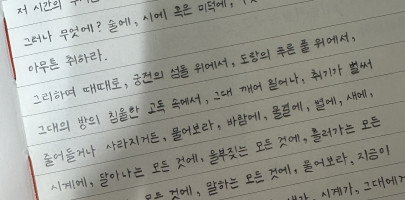 저 시간의
그러나 무엇에? 술에, 시에 혹은 미덕에,
아무튼 취하라.
그리하여 때때로, 궁전의 섬돌 위에서, 도랑의 푸른 풀 위에서,
그대의 방의 침울한 고독 속에서, 그대 깨어 일어나, 취기가 벌써
줄어들거나 사라지거든, 물어보라, 바람에, 물결에, 별에, 새에,
시계에, 달아나는 모든 것에, 울부짖는 모든 것에, 흘러가는 모든
모든 것에, 말하는 모든 것에, 물어보라, 지금이
시계가, 그대에게